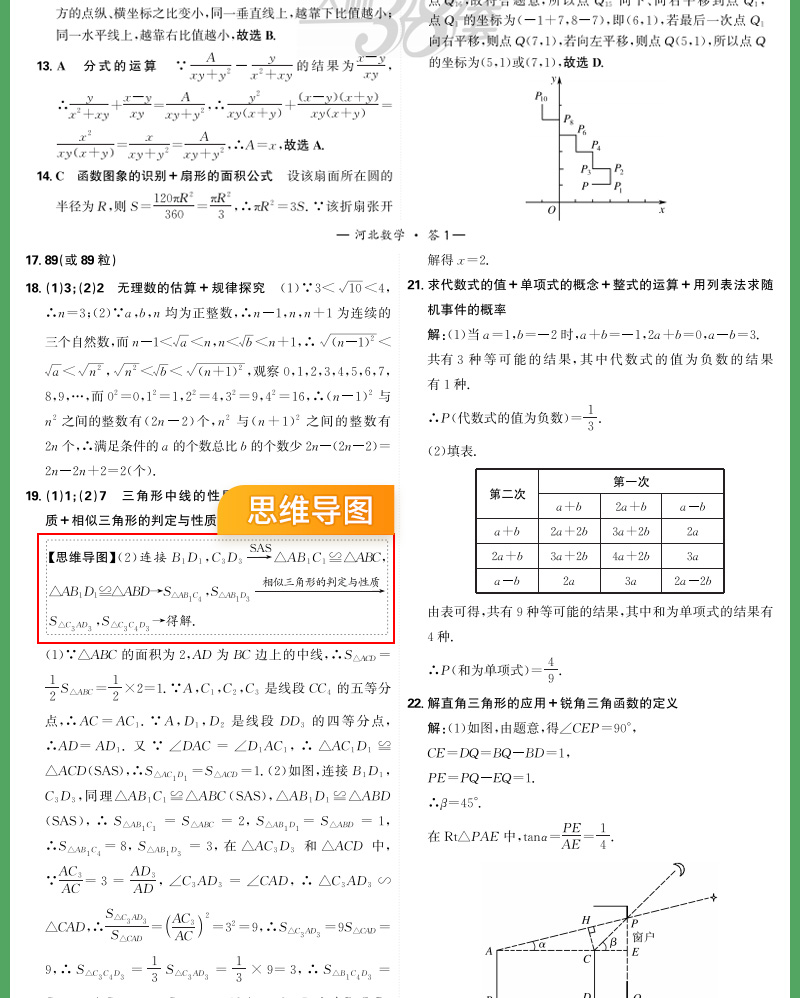 方的点纵、横坐标之比变小,同一垂直线上,越靠下比值越小;
同一水平线上,越靠右比值越小,故选 B.
13. A 分式的运算 ∵A/(xy+y²)−y/(x²+xy)的结果为(x−y)/xy,
∴y/(x²+xy)+(x−y)/xy=A/(xy+y²),∴y²/(xy(x+y))+((x−y)(x+y))/(xy(x+y))=
x²/(xy(x+y))=x/(xy+y²)=A/(xy+y²),∴A=x,故选 A.
14. C 函数图象的识别+扇形的面积公式 设该扇面所在圆的
半径为 R,则 S=120πR²/360=πR²/3,∴πR²=3S.∵该折扇张开
向下、向右平移到点
点Q₁ 的坐标为(−1+7,8−7),即(6,1),若最后一次点 Q₁
向右平移,则点 Q(7,1),若向左平移,则点 Q(5,1),所以点 Q
的坐标为(5,1)或(7,1),故选 D.
y
P₁₀
P₈
P₆
P₄
P₃ P₂
P P₁
O x
— 河北数学 · 答 1 —
17. 89(或 89 粒)
18. (1)3;(2)2 无理数的估算+规律探究 (1)∵3<√10<4,
∴n=3;(2)∵a,b,n 均为正整数,∴n−1,n,n+1 为连续的
三个自然数,而 n−1<√a<n,n<√b<n+1,∴√(n−1)²<
√a<√n²,√n²<√b<√(n+1)²,观察 0,1,2,3,4,5,6,7,
8,9,…,而 0²=0,1²=1,2²=4,3²=9,4²=16,∴(n−1)² 与
n² 之间的整数有(2n−2)个,n² 与(n+1)² 之间的整数有
2n 个,∴满足条件的 a 的个数总比 b 的个数少 2n−(2n−2)=
2n−2n+2=2(个).
19. (1)1;(2)7 三角形中线的性
质+相似三角形的判定与性质
思维导图
【思维导图】(2)连接 B₁D₁,C₃D₃ SAS→△AB₁C₁≌△ABC,
△AB₁D₁≌△ABD→S△AB₁C₄,S△AB₁D₃ 相似三角形的判定与性质→
S△C₃AD₃,S△C₃C₄D₃→得解.
(1)∵△ABC 的面积为 2,AD 为 BC 边上的中线,∴S△ACD=
1/2 S△ABC=1/2×2=1.∵A,C₁,C₂,C₃ 是线段 CC₄ 的五等分
点,∴AC=AC₁.∵A,D₁,D₂ 是线段 DD₃ 的四等分点,
∴AD=AD₁.又∵∠DAC=∠D₁AC₁,∴△AC₁D₁≌
△ACD(SAS),∴S△AC₁D₁=S△ACD=1.(2)如图,连接 B₁D₁,
C₃D₃,同理△AB₁C₁≌△ABC(SAS),△AB₁D₁≌△ABD
(SAS),∴S△AB₁C₁=S△ABC=2,S△AB₁D₁=S△ABD=1,
∴S△AB₁C₄=8,S△AB₁D₃=3,在△AC₃D₃ 和△ACD 中,
∵AC₃/AC=3=AD₃/AD,∠C₃AD₃=∠CAD,∴△C₃AD₃∽
△CAD,∴S△C₃AD₃/S△CAD=(AC₃/AC)²=3²=9,∴S△C₃AD₃=9S△CAD=
9,∴S△C₃C₄D₃=1/3 S△C₃AD₃=1/3×9=3,∴S△B₁C₄D₃=
解得 x=2.
21. 求代数式的值+单项式的概念+整式的运算+用列表法求随
机事件的概率
解:(1)当 a=1,b=−2 时,a+b=−1,2a+b=0,a−b=3.
共有 3 种等可能的结果,其中代数式的值为负数的结果
有 1 种.
∴P(代数式的值为负数)=1/3.
(2)填表.
第二次 第一次
a+b 2a+b a−b
a+b 2a+2b 3a+2b 2a
2a+b 3a+2b 4a+2b 3a
a−b 2a 3a 2a−2b
由表可得,共有 9 种等可能的结果,其中和为单项式的结果有
4 种.
∴P(和为单项式)=4/9.
22. 解直角三角形的应用+锐角三角函数的定义
解:(1)如图,由题意,得∠CEP=90°,
CE=DQ=BQ−BD=1,
PE=PQ−EQ=1.
∴β=45°.
在 Rt△PAE 中,tanα=PE/AE=1/4.
H P
窗户
A α β
C E